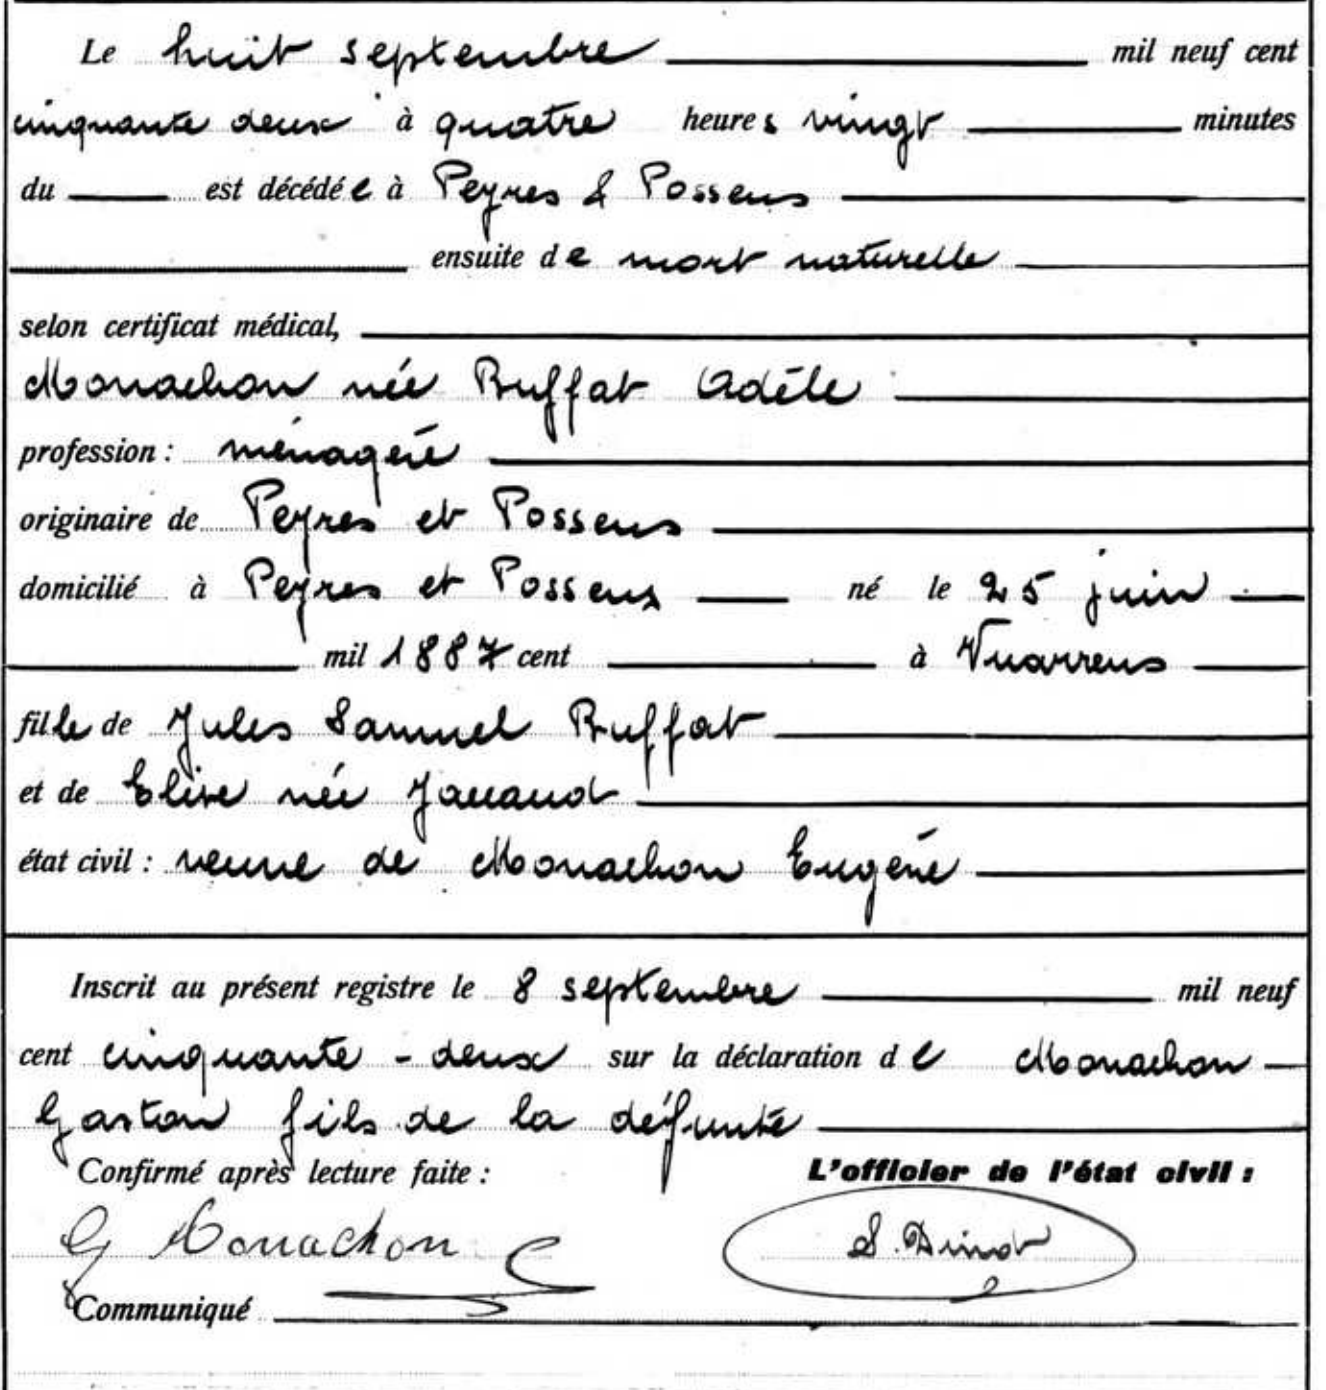 Le huit septembre mil neuf cent
cinquante deux à quatre heures vingt minutes
du est décédée à Peyres & Possens
ensuite de mort naturelle
selon certificat médical,
Monachon née Buffat Adèle
profession : ménagère
originaire de Peyres et Possens
domicilié à Peyres et Possens né le 25 juin
mil 1887 cent à Vuarrens
fille de Jules Samuel Buffat
et de Elise née Jaccaud
état civil : veuve de Monachon Eugène
Inscrit au présent registre le 8 septembre mil neuf
cent cinquante-deux sur la déclaration de Monachon
Gaston fils de la défunte
Confirmé après lecture faite : L'officier de l'état civil :
G Monachon S.
Communiqué